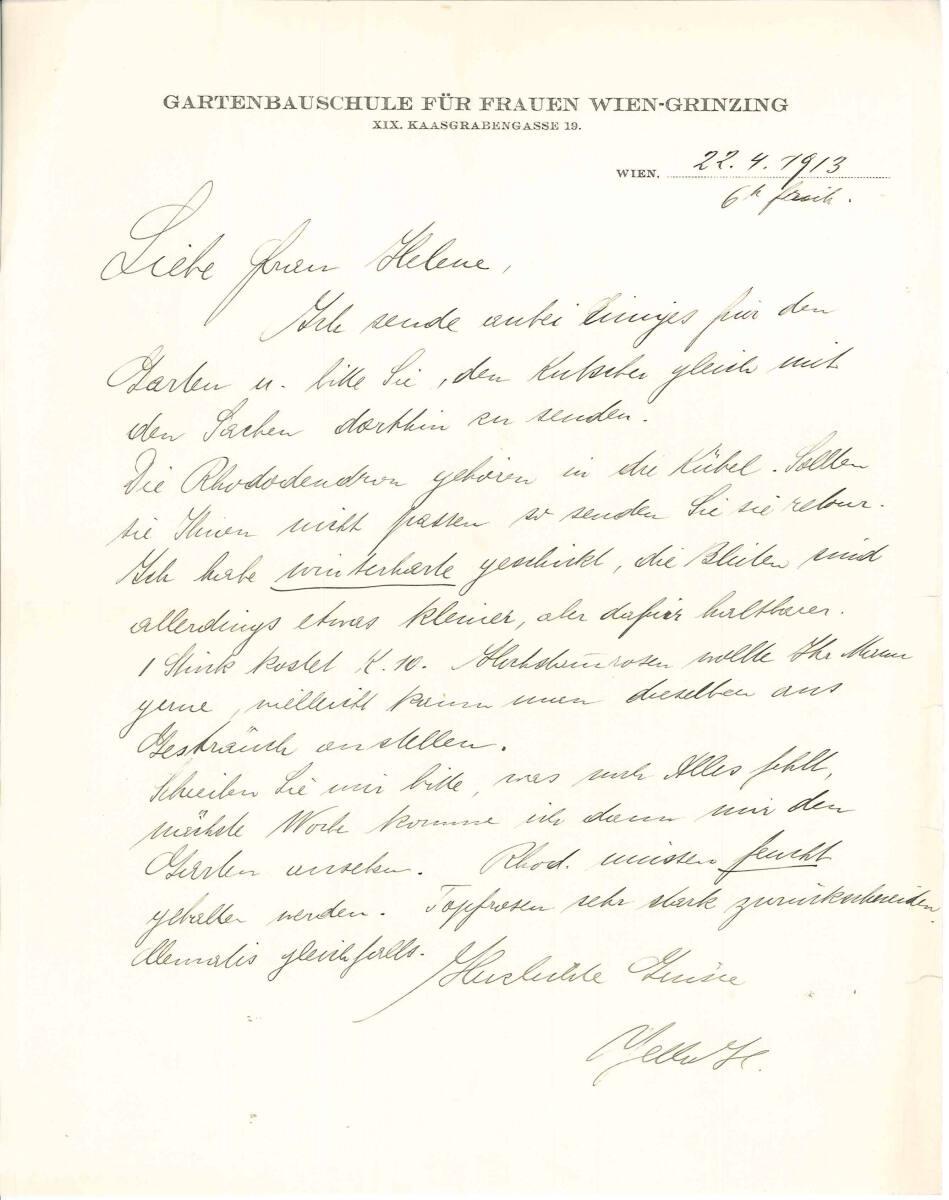 GARTENBAUSCHULE FÜR FRAUEN WIEN-GRINZING
XIX. KAASGRABENGASSE 19.
WIEN, 22. 4. 1913
6h früh.
Liebe Frau Helene,
Ich sende anbei Einiges für den
Garten u. bitte Sie, den Kutscher gleich mit
den Sachen dorthin zu senden.
Die Rhododendron gehören in die Kübel. Sollten
sie Ihnen nicht passen so senden Sie sie retour.
Ich habe winterharte geschickt, die Blüten sind
allerdings etwas kleiner, aber dafür haltbarer.
1 Stück kostet K. 10. Hochstammrosen wollte Ihr Mann
gerne, vielleicht kann man dieselben ans
Gesträuch anstellen.
Schreiben Sie mir bitte, was noch Alles fehlt,
nächste Woche komme ich dann mir den
Garten ansehen. Rhod. müssen feucht
gehalten werden. Topfrosen sehr stark zurückschneiden.
Clematis gleichfalls.
Herzlichste Grüße
Yella H.